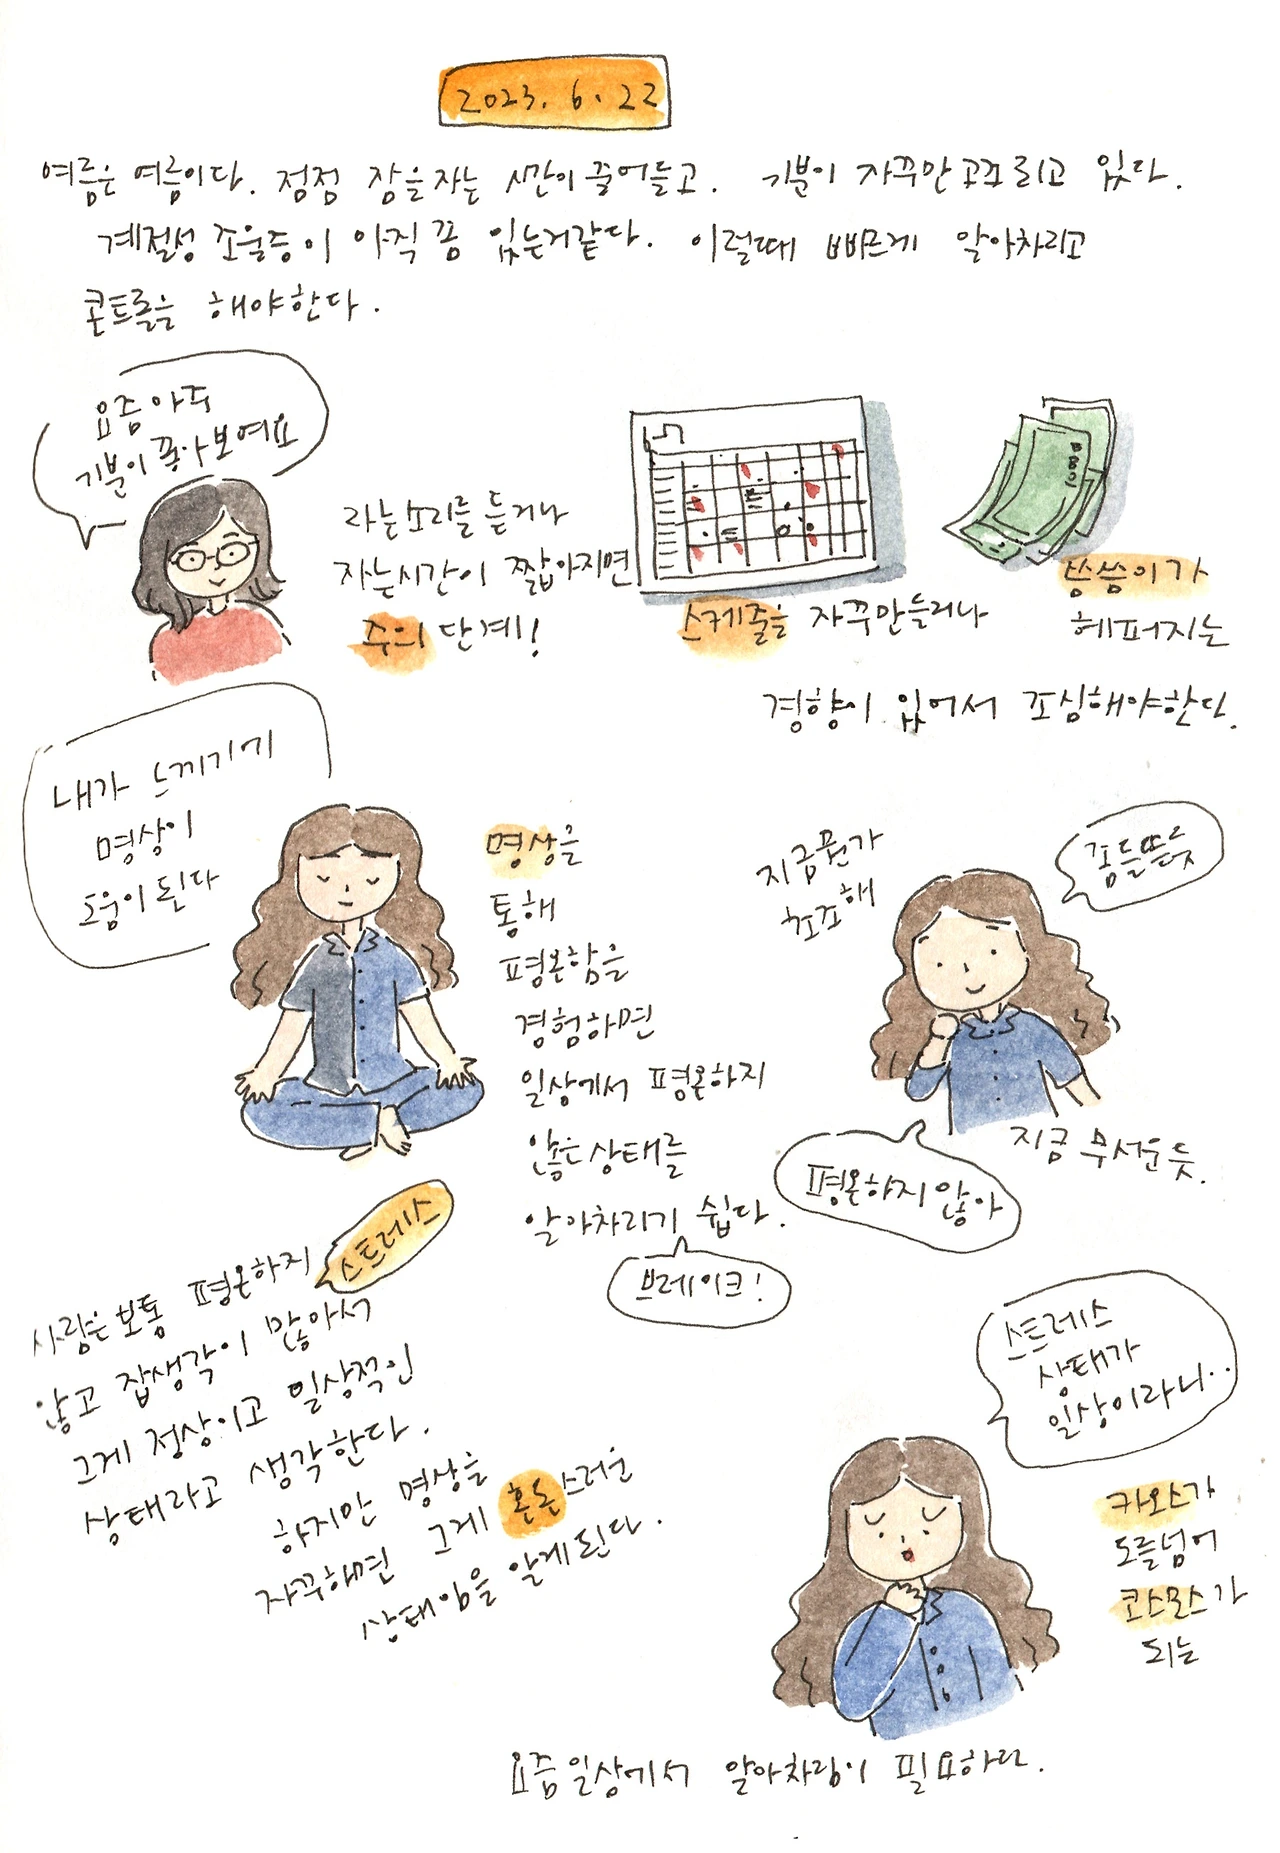 2023. 6. 22
여름은 여름이다. 점점 잠을자는 시간이 줄어들고. 기분이 자꾸만고조되고 있다.
계절성 조울증이 아직 쫌 있는거같다. 이럴때 빠르게 알아차리고
콘트롤을 해야한다.
요즘아주
기분이 좋아보여요
라는소리를 듣거나
자는시간이 짧아지면
주의 단계!
스케줄을 자꾸만들거나
씀씀이가
헤퍼지는
경향이 있어서 조심해야한다.
내가 느끼기에
명상이
도움이 된다
명상을
통해
평온함을
경험하면
일상에서 평온하지
않은상태를
알아차리기 쉽다.
브레이크!
지금뭔가
초조해
힘든듯
지금 무서운듯.
평온하지 않아
스트레스
사람은보통 평온하지
않고 잡생각이 많아서
그게 정상이고 일상적인
상태라고 생각한다.
하지만 명상을
자꾸해면 그게 혼돈스러운
상태임을 알게된다.
스트레스
상태가
일상이라니..
카오스가
도를넘어
코스모스가
되는
요즘일상에서 알아차림이 필요하다.